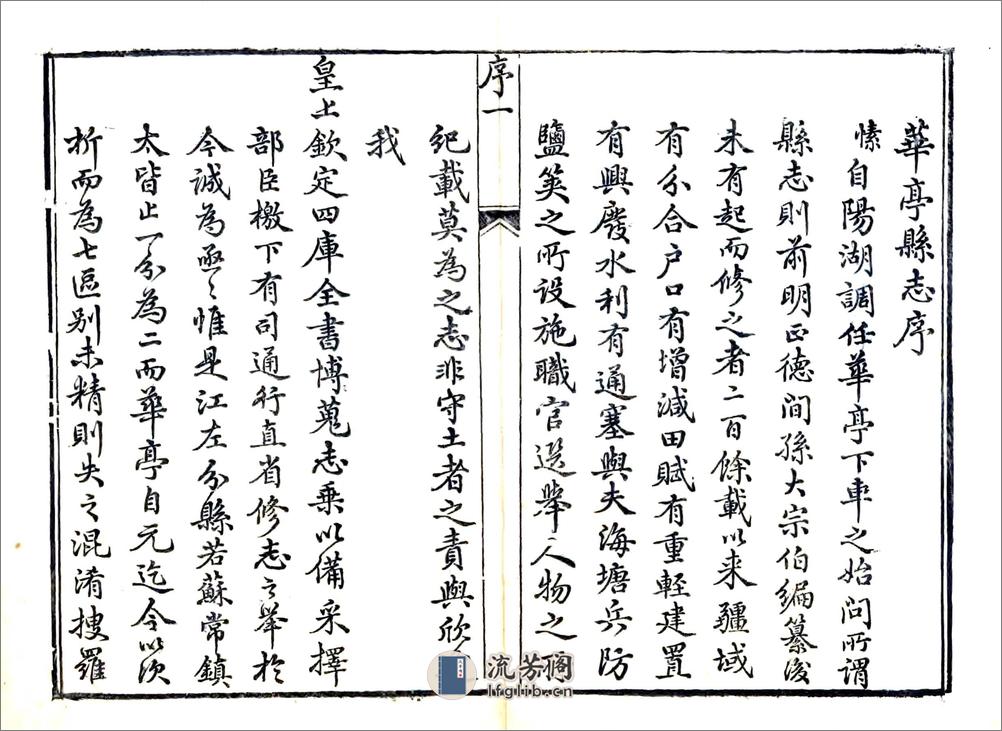 華亭縣志序
愫自陽湖調任華亭下車之始問所謂
縣志則前明正德間孫大宗伯編纂後
未有起而修之者二百餘載以来疆域
有分合户口有增減田賦有重輕建置
有興廢水利有通塞與夫海塘兵防
鹽筴之所設施職官選舉人物之
序一
紀載莫為之志非守土者之責與欣
我
皇上欽定四庫全書博蒐志乗以備采擇
部臣檄下有司通行直省修志之舉於
今誠為亟〻惟是江左分縣若蘇常鎮
太皆止一分為二而華亭自元迄今以次
析而為七區别未精則失之混淆搜羅
流芳阁
lfglib.cn